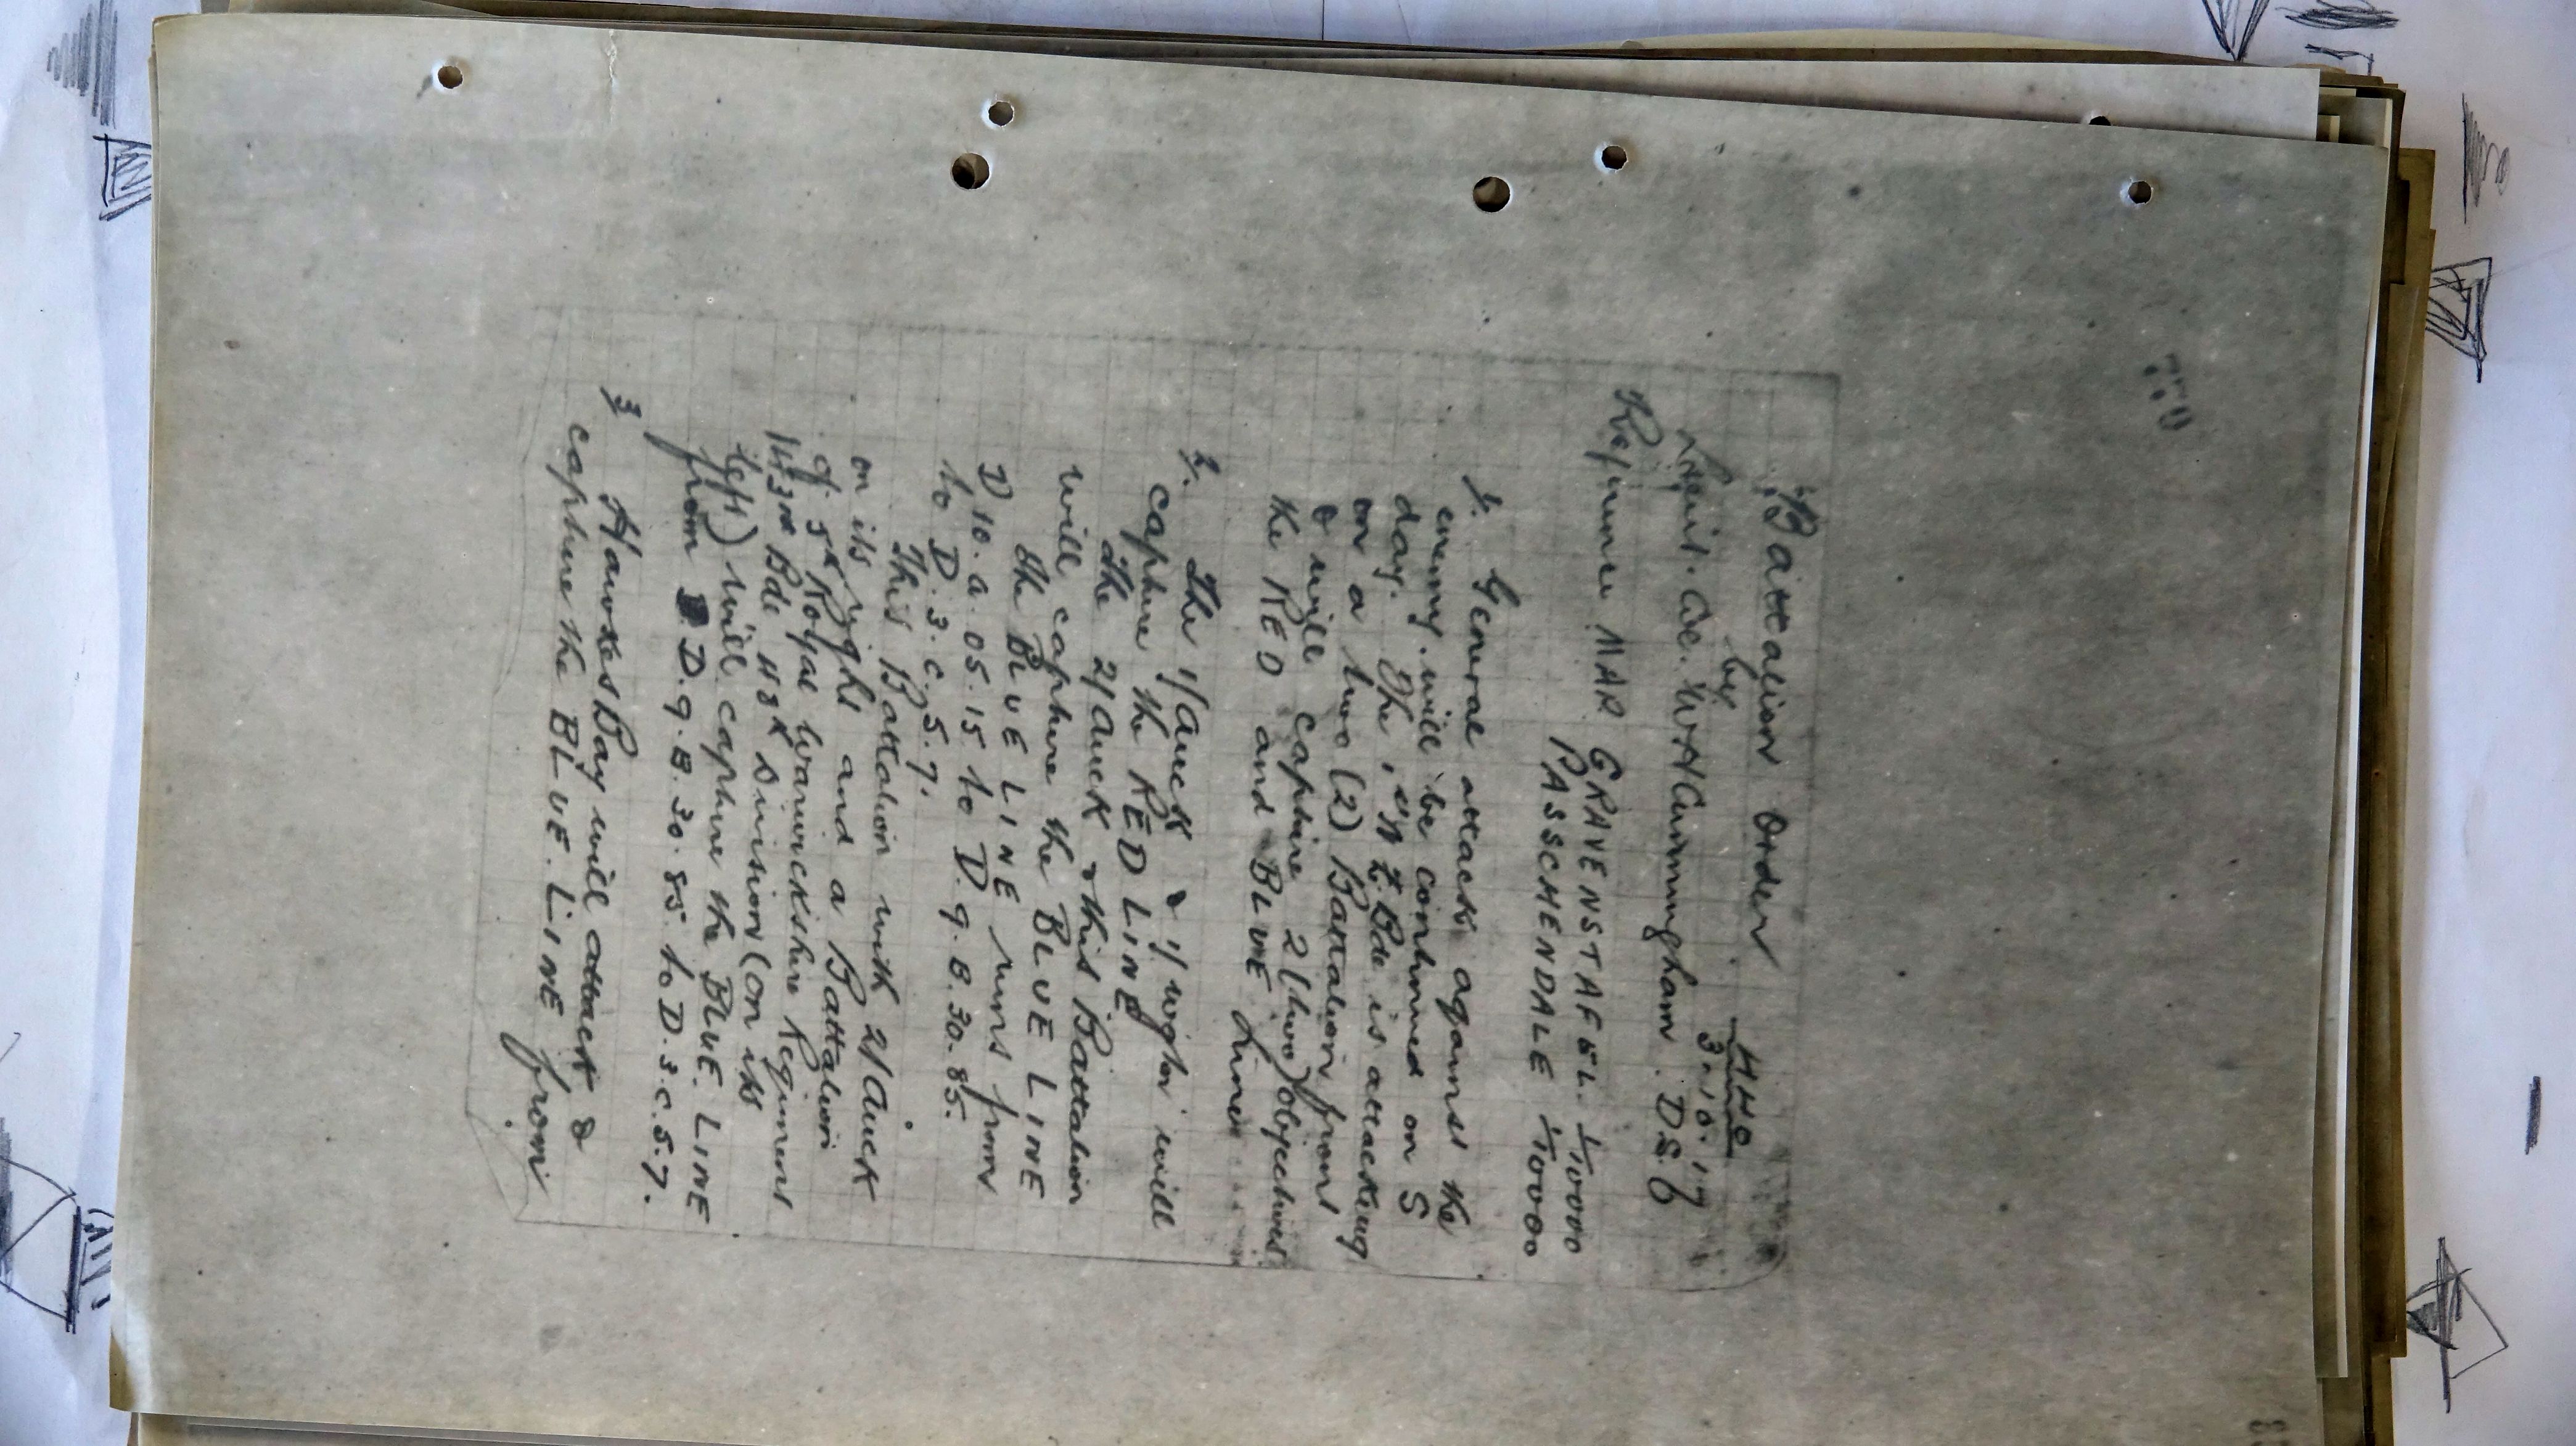 Battalion Order HHQ
by 3.10.17
Lieut. Col. W H Cunningham. D.S.O
Reference MAP GRAVENSTAFEL. 1/10000
PASSCHENDALE 1/10000
1. General attack against the
enemy will be continued on S
day. The 1st N.Z. Bde is attacking
on a two (2) Battalion front
& will capture 2 (two) objectives
the RED and BLUE Lines
2. The 1/Auck & 1/Wgtn will
capture the RED LINE
The 2/Auck & this Battalion
will capture the BLUE LINE
the BLUE LINE runs from
D 10. a. 05. 15 to D. 9. B. 30. 85.
to D. 3. C. 5. 7.
This Battalion with 2/Auck
on its right and a Battalion
of 5th Royal Warwickshire Regiment
143rd Bde 48th Division (on its
left) will capture the BLUE. LINE
from D. 9. B. 30. 85. to D. 3. C. 5. 7.
3/ Hawkes Bay will attack &
capture the BLUE. LINE from